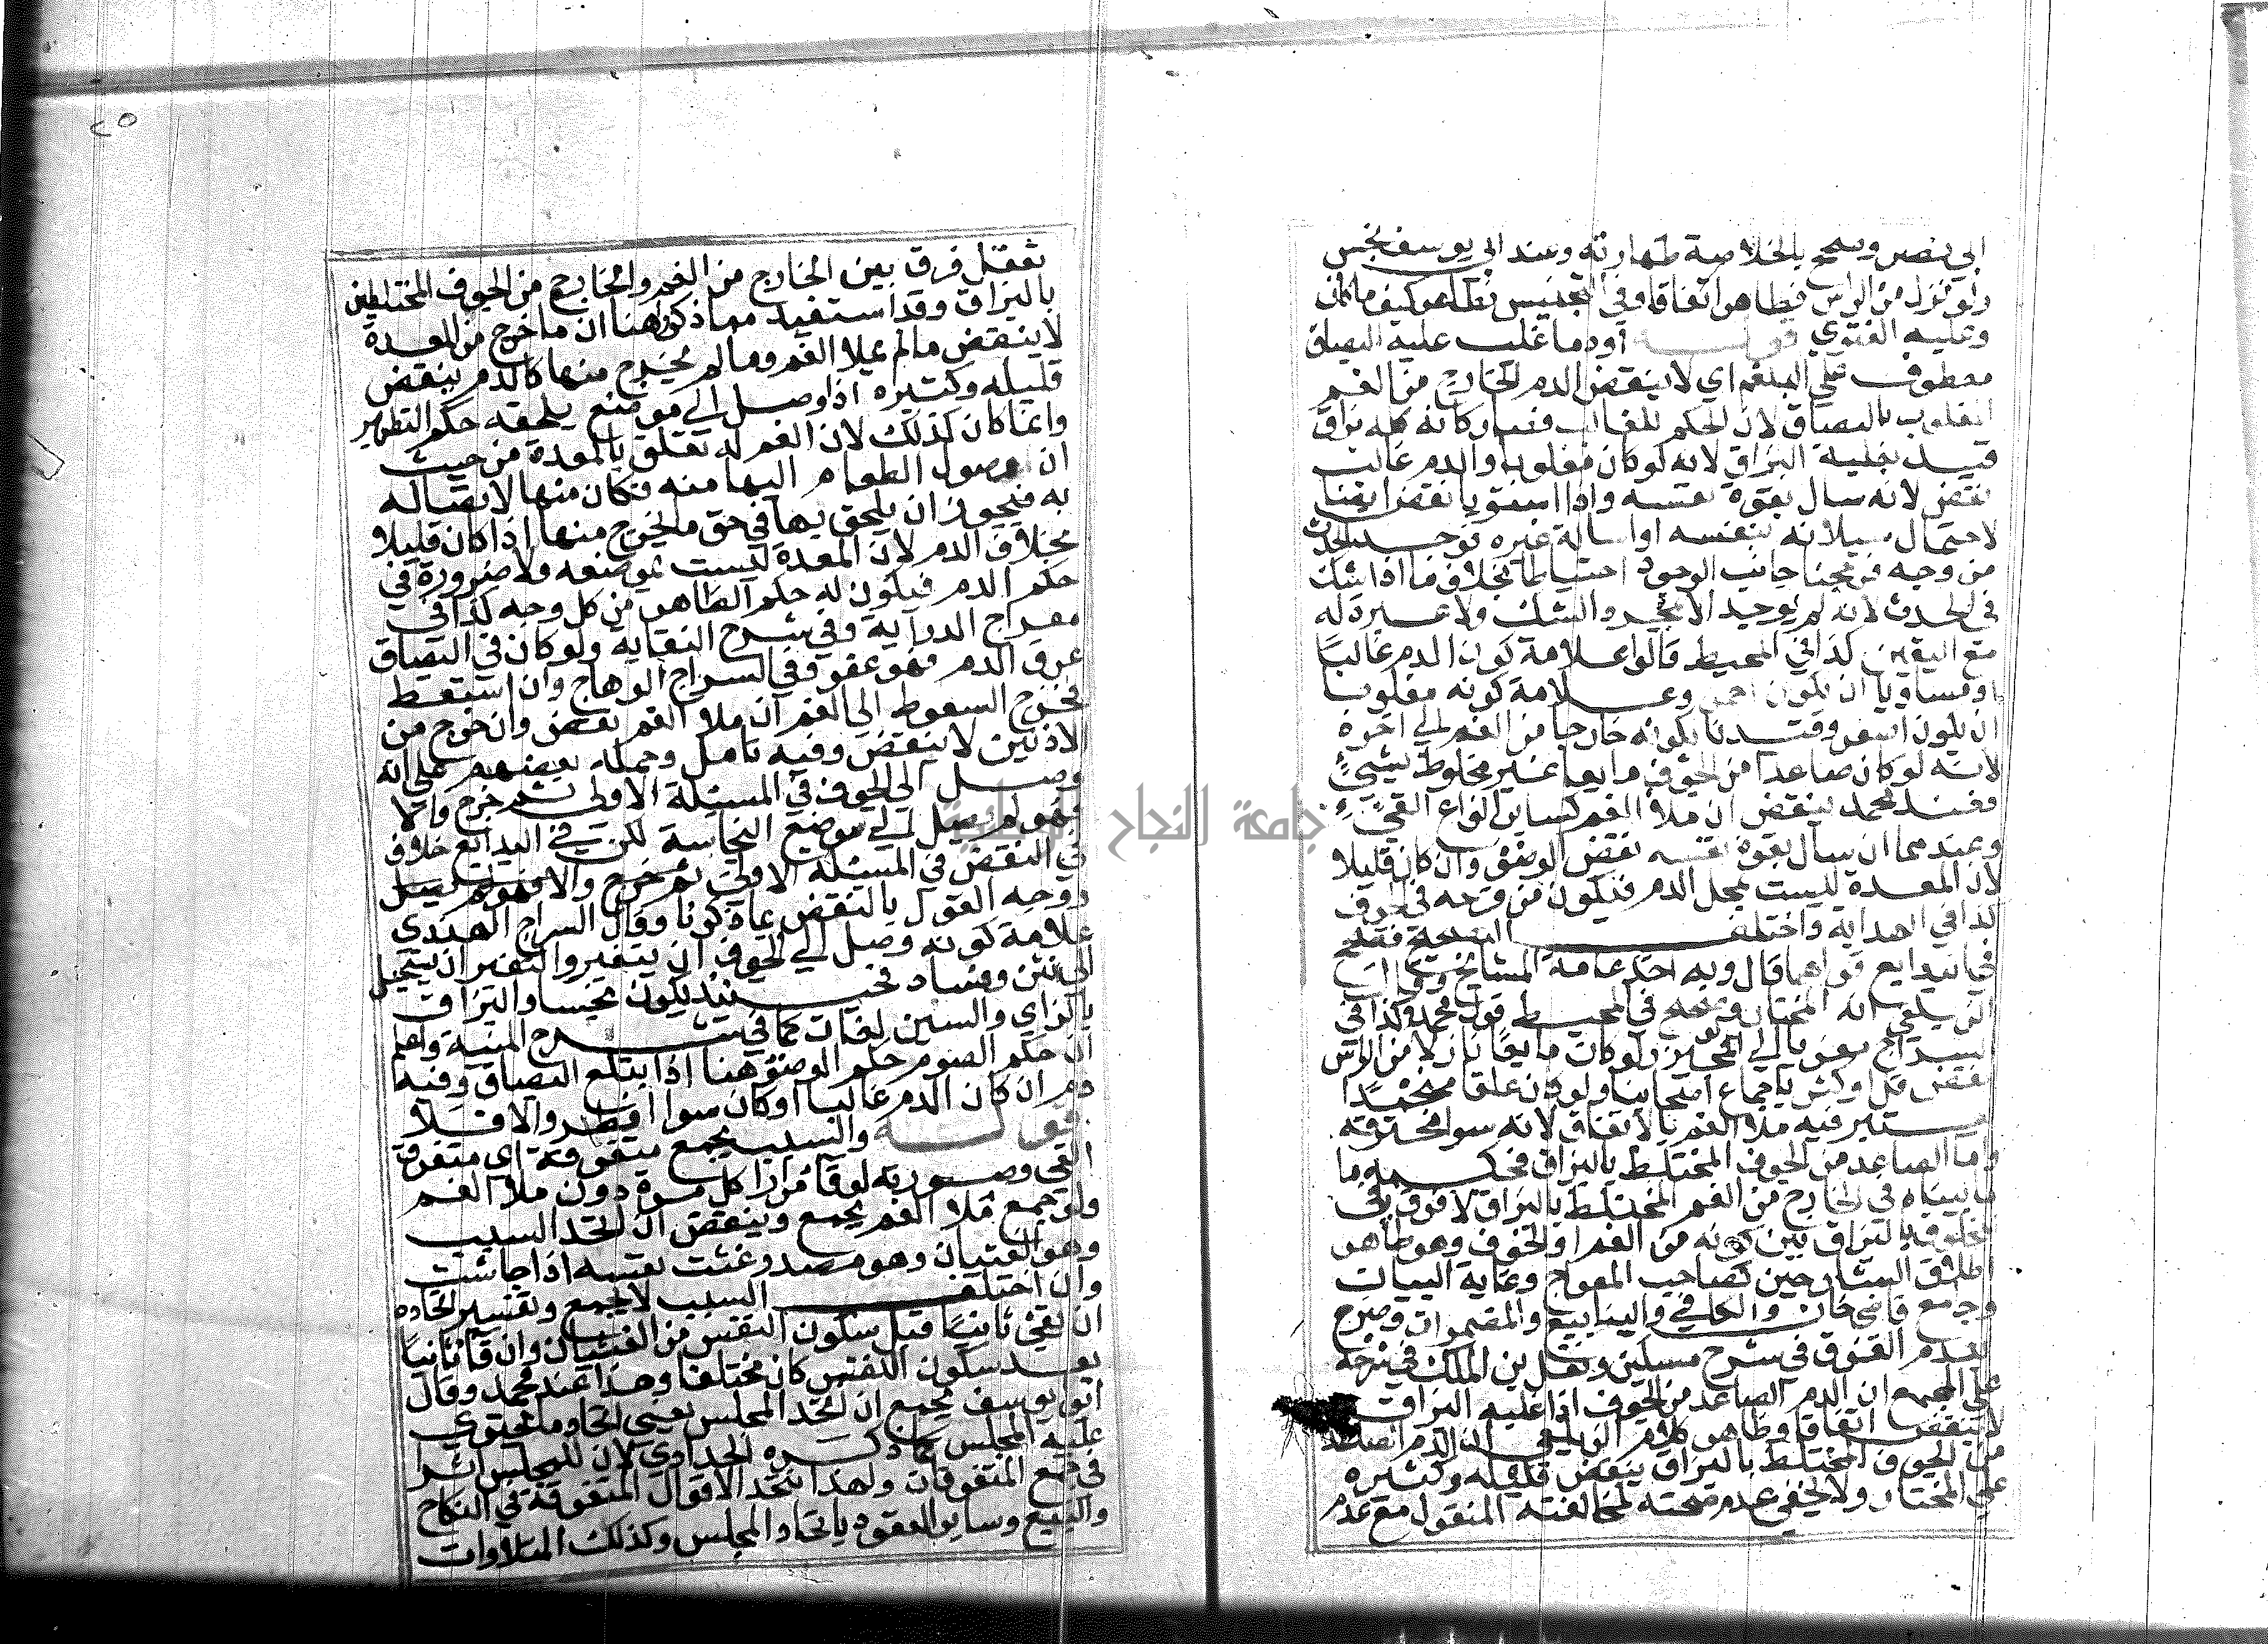 ابي نصر وصحح بالخلاصة طهارته وعند ابي يوسف نجس
ولو نزل من الراس فطاهر اتفاقا وفي التجنيس طاهر كيف ما كان
وعليه الفتوي قوله او دما غلب عليه البصاق
معطوف علي البلغم اي لا ينقض الدم الخارج من الفم
المغلوب بالبصاق لان الحكم للغالب فصار كانه كله بزاق
قيد بغلبة البزاق لانه لو كان مغلوبا والدم غالب
نقض لانه سال بقوة نفسه واذا استويا نقض ايضا
لاحتمال سيلانه بنفسه او اساله غيره فوجد الحدث
من وجه فرجحنا جانب الوجود احتياطا بخلاف ما اذا شك
في الحدث لانه لم يوجد الا مجرد الشك ولا عبرة له
مع اليقين كذا في المحيط قالوا علامة كون الدم غالبا
او مساويا ان يكون احمر وعلامة كونه مغلوبا
ان يكون اصفر وقيدنا بكونه خارجا من الفم الي اخره
لانه لو كان صاعدا من الجوف مايعا غير مخلوط بشيء
فعند محمد ينقض ان ملا الفم كساير انواع القيء
وعندهما ان سال بقوة نفسه نقض الوضوء وان كان قليلا
لان المعدة ليست بمحل الدم فيكون من قرحه في الجوف
كذا في الهداية واختلف التصحيح فصحح
في البدايع قولهما قال وبه اخذ عامة المشايخ وقال
الزيلعي انه المختار وصحح في المحيط قول محمد وكذا في
السراج معزيا الي الوجيز ولو كان مايعا نازلا من الراس
نقض قل او كثر باجماع اصحابنا ولو كان علقا منجمدا
يعتبر فيه ملا الفم بالاتفاق لانه سودا محترقة
واما الصاعد من الجوف المختلط بالبزاق فحكمه ما
بيناه في الخارج من الفم المختلط بالبزاق لا فرق في
المخلوط بالبزاق بين كونه من الفم او الجوف وهو ظاهر
اطلاق الشارحين كصاحب المعراج وغاية البيان
وجامع قاضي خان والكافي والينابيع والمضمرات وصرح
بعدم الفرق في شرح مسكين ونقل بن الملك في شرحه
علي المجمع ان الدم الصاعد من الجوف اذا غلبه البزاق
لا ينقض اتفاقا وظاهر كلام الزيلعي ان الدم الصاعد
من الجوف المختلط بالبزاق ينقض قليله وكثيره
علي المختار ولا يخفي عدم صحته لمخالفته المنقول مع عدم
تعقل فرق بين الخارج من الفم والخارج من الجوف المختلطين
بالبزاق وقد استفيد مما ذكروا هنا ان ما خرج من المعدة
لا ينقض ما لم يملا الفم وما لم يخرج منها كالدم ينقض
قليله وكثيره اذا وصل الي موضع يلحقه حكم التطهير
وانما كان كذلك لان الفم له تعلق بالمعدة من حيث
ان وصول الطعام اليها منه فكان منها لاتصاله
به فيجوز ان يلحق بها في حق ما يخرج منها اذا كان قليلا
بخلاف الدم لان المعدة ليست بموضعه ولا ضرورة في
حكم الدم فيكون له حكم الظاهر من كل وجه كذا في
معراج الدراية وفي شرح النقاية ولو كان في البصاق
عرق الدم فهو عفو وفي السراج الوهاج وان استعط
فخرج السعوط الي الفم ان ملا الفم نقض وان خرج من
الاذنين لا ينقض وفيه تامل وحمله بعضهم علي انه
وصل الي الجوف في المسئلة الاولي ثم خرج والا
فهو لم يصل الي موضع النجاسة لكن في البدايع خلاف
في النقض في المسئلة الاولي ثم خرج والا فهو لم يصل
ووجه القول بالنقض بما ذكرنا وقال السراج الهندي
علامة كونه وصل الي الجوف ان يتغير والتغير ان يستحيل
الي نتن وفساد فحينئذ يكون نجسا والبزاق
بالزاي والسين لغات كما في شرح المنية واعلم
ان حكم الصوم حكم الوضوء هنا اذا ابتلع البصاق وفيه
دم ان كان الدم غالبا او كان سوا افطر والا فلا
قوله والسبب يجمع متفرقه اي متفرق
القي وصورته لو قا مرارا كل مرة دون ملا الفم
ولو جمع ملا الفم يجمع وينقض ان اتحد السبب
وهو الغثيان وهو مصدر غثت نفسه اذا جاشت
وان اختلف السبب لا يجمع وتفسير اتحاده
ان يقي ثانيا قبل سكون النفس من الغثيان وان قا ثانيا
بعد سكون النفس كان مختلفا وهذا عند محمد وقال
ابو يوسف يجمع ان اتحد المجلس يعني اتحاد ما يحتوي
عليه المجلس كما ذكره الحدادي لان للمجلس اثرا
في جمع المتفرقات ولهذا تتحد الاقوال المتفرقة في النكاح
والبيع وساير العقود باتحاد المجلس وكذلك التلاوات